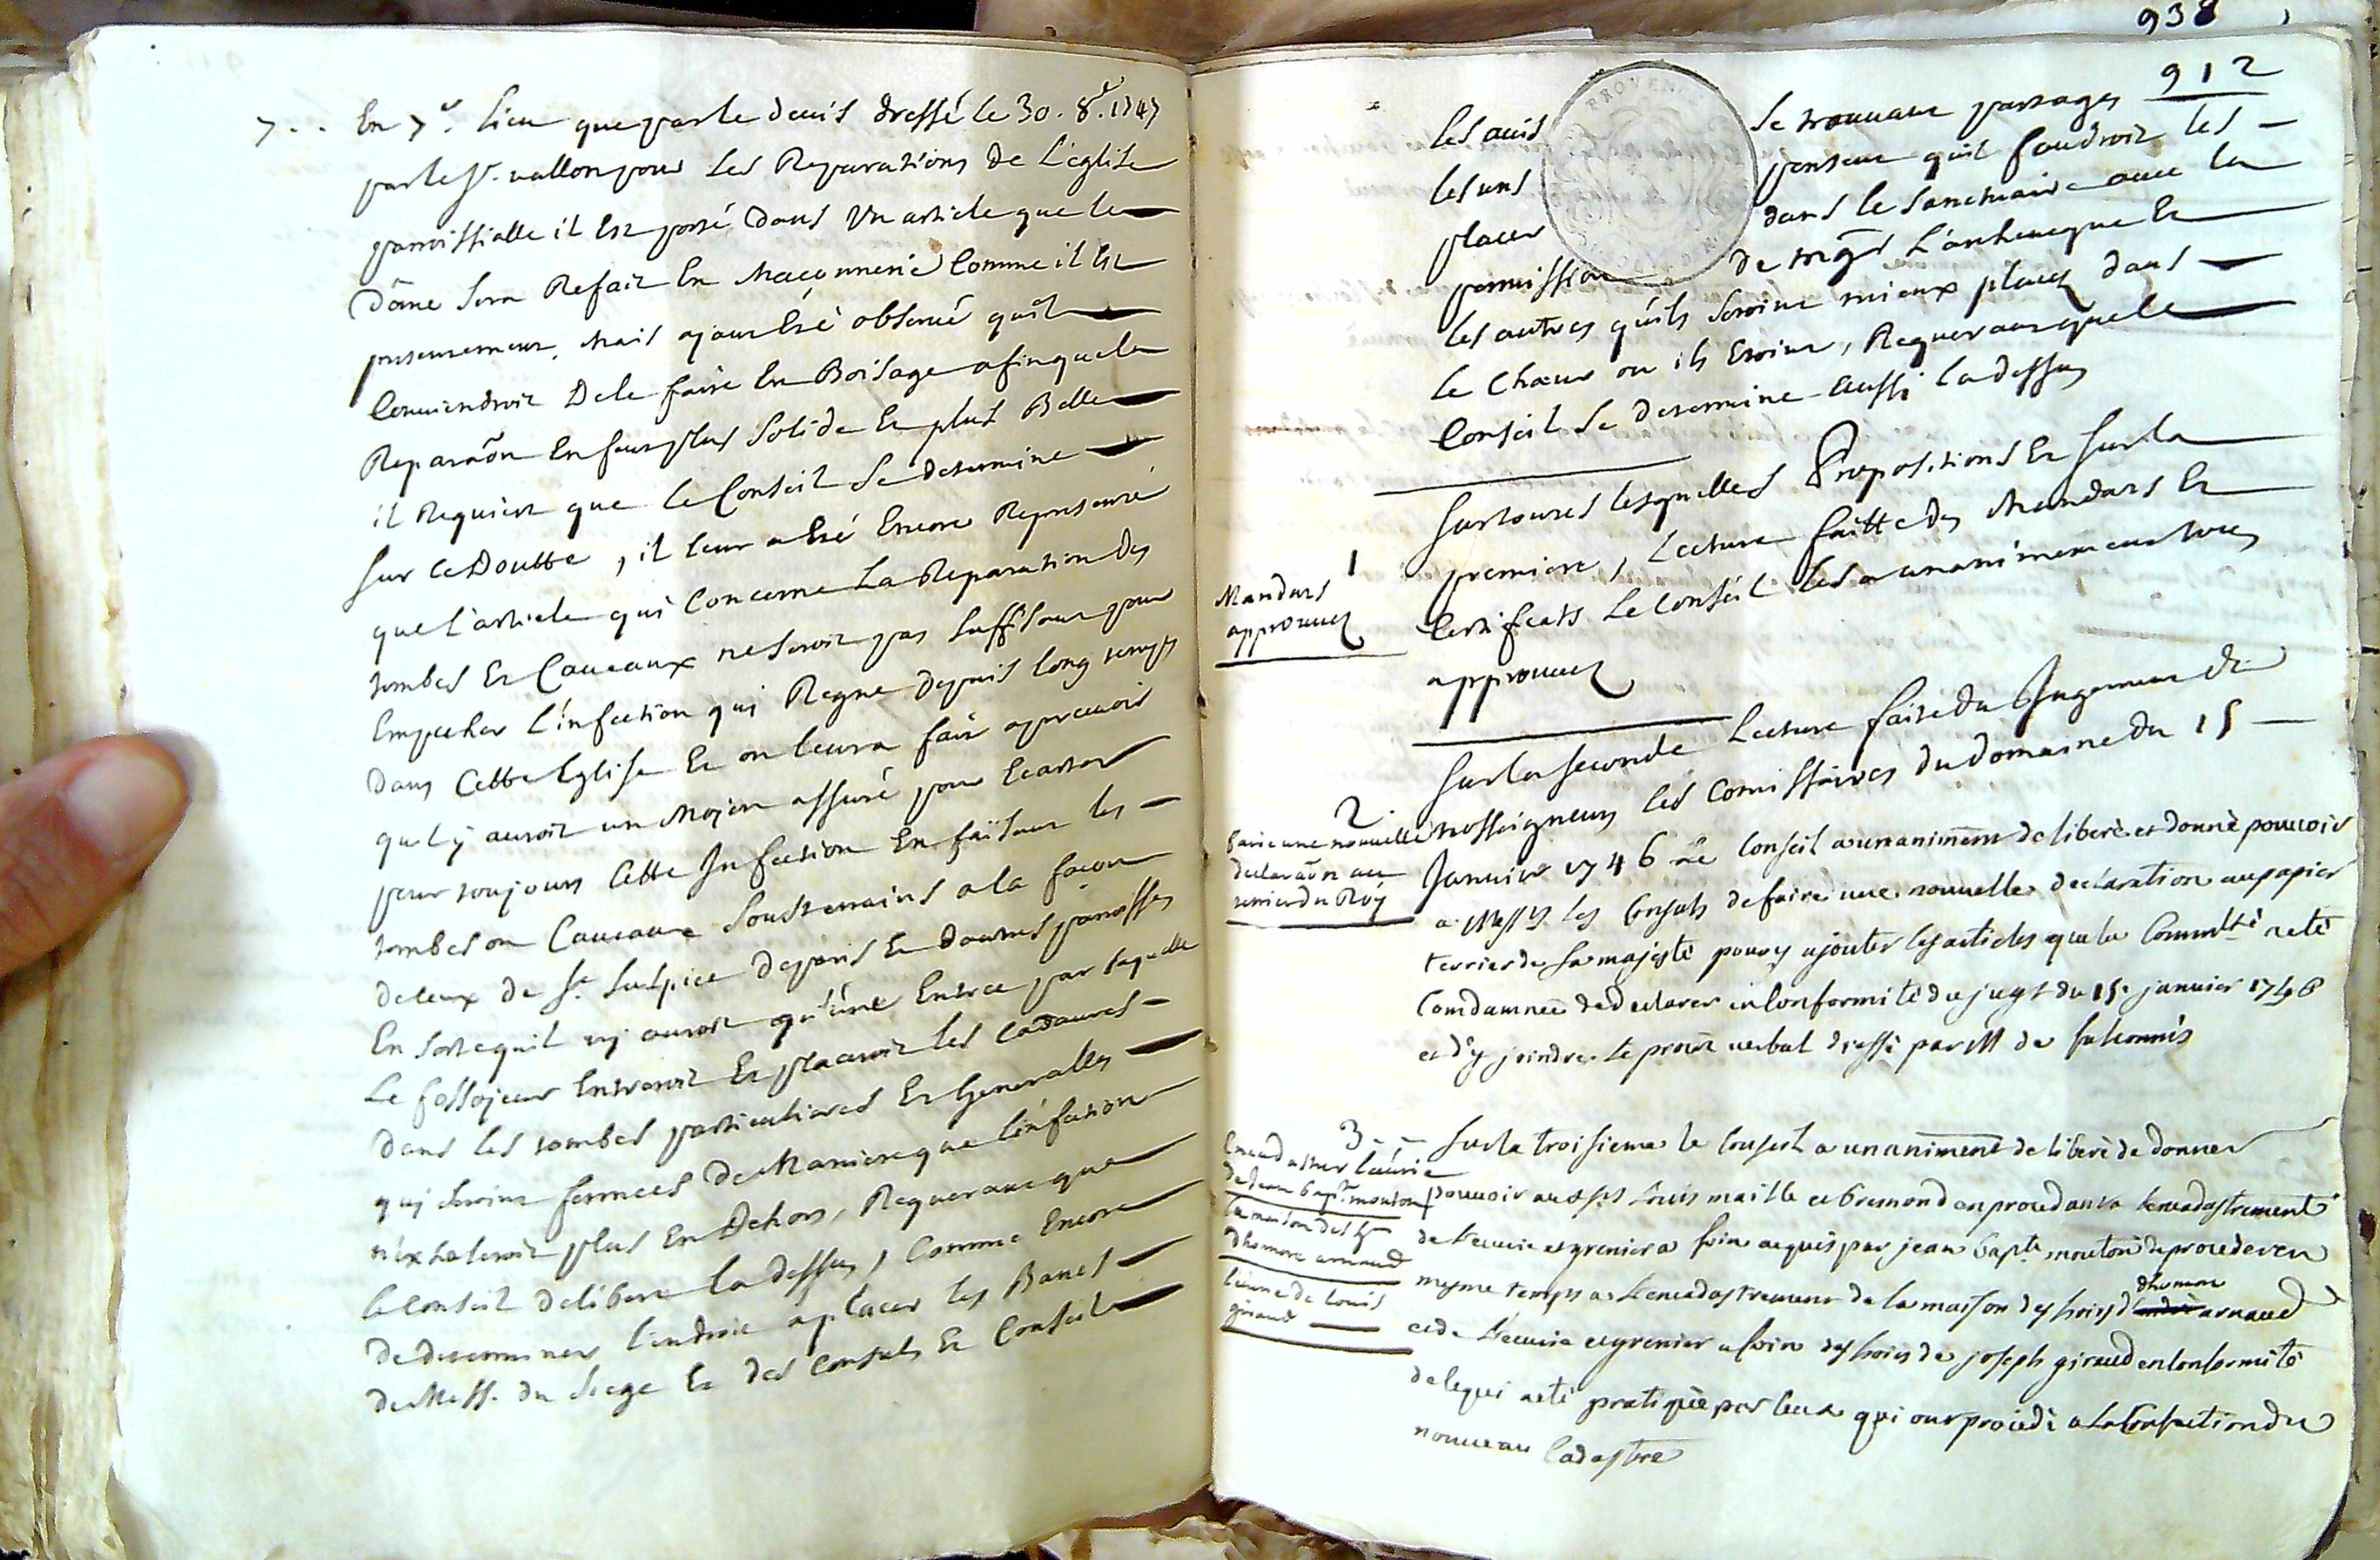 7.. En 7.e lieu que par le devis dressé le 30. 8.e 1747
par le Sr. vallon pour les Reparations de L'eglise
parroissialle il Est porté dans Un article que le
dôme sera Refait En Maçonnerie Comme il Est
presentement, mais ayant Esté observé qu'il
Conviendroit De le faire En Boisage afin que la
Reparaõn En feut plus Solide Et plus Belle
il Requiert que le Conseil Se determine
Sur ce Doutte, il leur a Esté Encore Representé
que l'article qui Concerne La Reparation des
tombes Et Caveaux ne seroit pas suffisant pour
Empecher L'infection qui Regne depuis long temps
dans Cette Eglise Et on leur a fait apercevoir
qu'il y auroit un Moyen assuré pour Ecarter
pour toujours Cette Infection En faisant les
tombes ou Caveaux Sousterrains a la façon
de ceux de St. Sulpice de paris Et d'autres paroisses
En sorte qu'il ny auroit qu'une Entrée par laquelle
Le fossoyeur Entreroit Et placeroit les Cadavres
dans les tombes particulieres Et Generalles
qui seroint fermées de Maniere que L'infection
n'exhaleroit plus En Dehors, Requerant que
le Conseil delibere la dessus, Comme Encore
de determiner l'endroit a placer les Bancs
de Mess. du Siege Et des Consuls Et Conseil
938
912
les avis se trouvant partagés
les uns pensent qu'il faudroit les
placer dans le Sanctuaire avec la
permission de mgr L'archeveque Et
les autres qu'ils seroint mieux placez dans
le Chœur ou ils Etoint, Requerant que le
Conseil Se determine aussi la dessus
Sur toutes lesquelles Propositions Et sur la
1 premiere, Lecture faitte des Mandats Et
Mandats
approuvez
Certificats Le Conseil les a unanimement tous
approuvez
Sur la seconde Lecture faite du Jugement de
2. nosseigneurs les Comissaires du domaine du 15
faire une nouvelle
declaraõn au
terrier du Roy
Janvier 1746 Le Conseil a unanimem̃t deliberé et donné pouvoir
a Messrs les Consuls de faire une nouvelle declaration au papier
terrier de sa majesté pour y ajouter les articles que la Commté a eté
Condamnée de declarer en Conformité du jugt du 15. janvier 1746
et d'y joindre le procès verbal dressé par M de
3 Sur la troisieme le Conseil a unaniment deliberé de donner
Encadastrer l'ecurie
de Jean Bapte mouton
la maison des hrs
dhonoré arnaud
l'ecurie de louis
giraud
pouvoir aux srs Louis maille et Bremond en procedant a l'encadastrement
de l'ecurie et grenier a foin acquis par jean Bapte mouton de proceder en
mesme temps a l'encadastrement de la maison des hoirs d'honoré arnaud
et de l'ecurie et grenier a foin des hoirs de joseph giraud en Conformité
de ce qui a eté pratiqué par ceux qui ont procedé a la Confection du
nouveau Cadastre